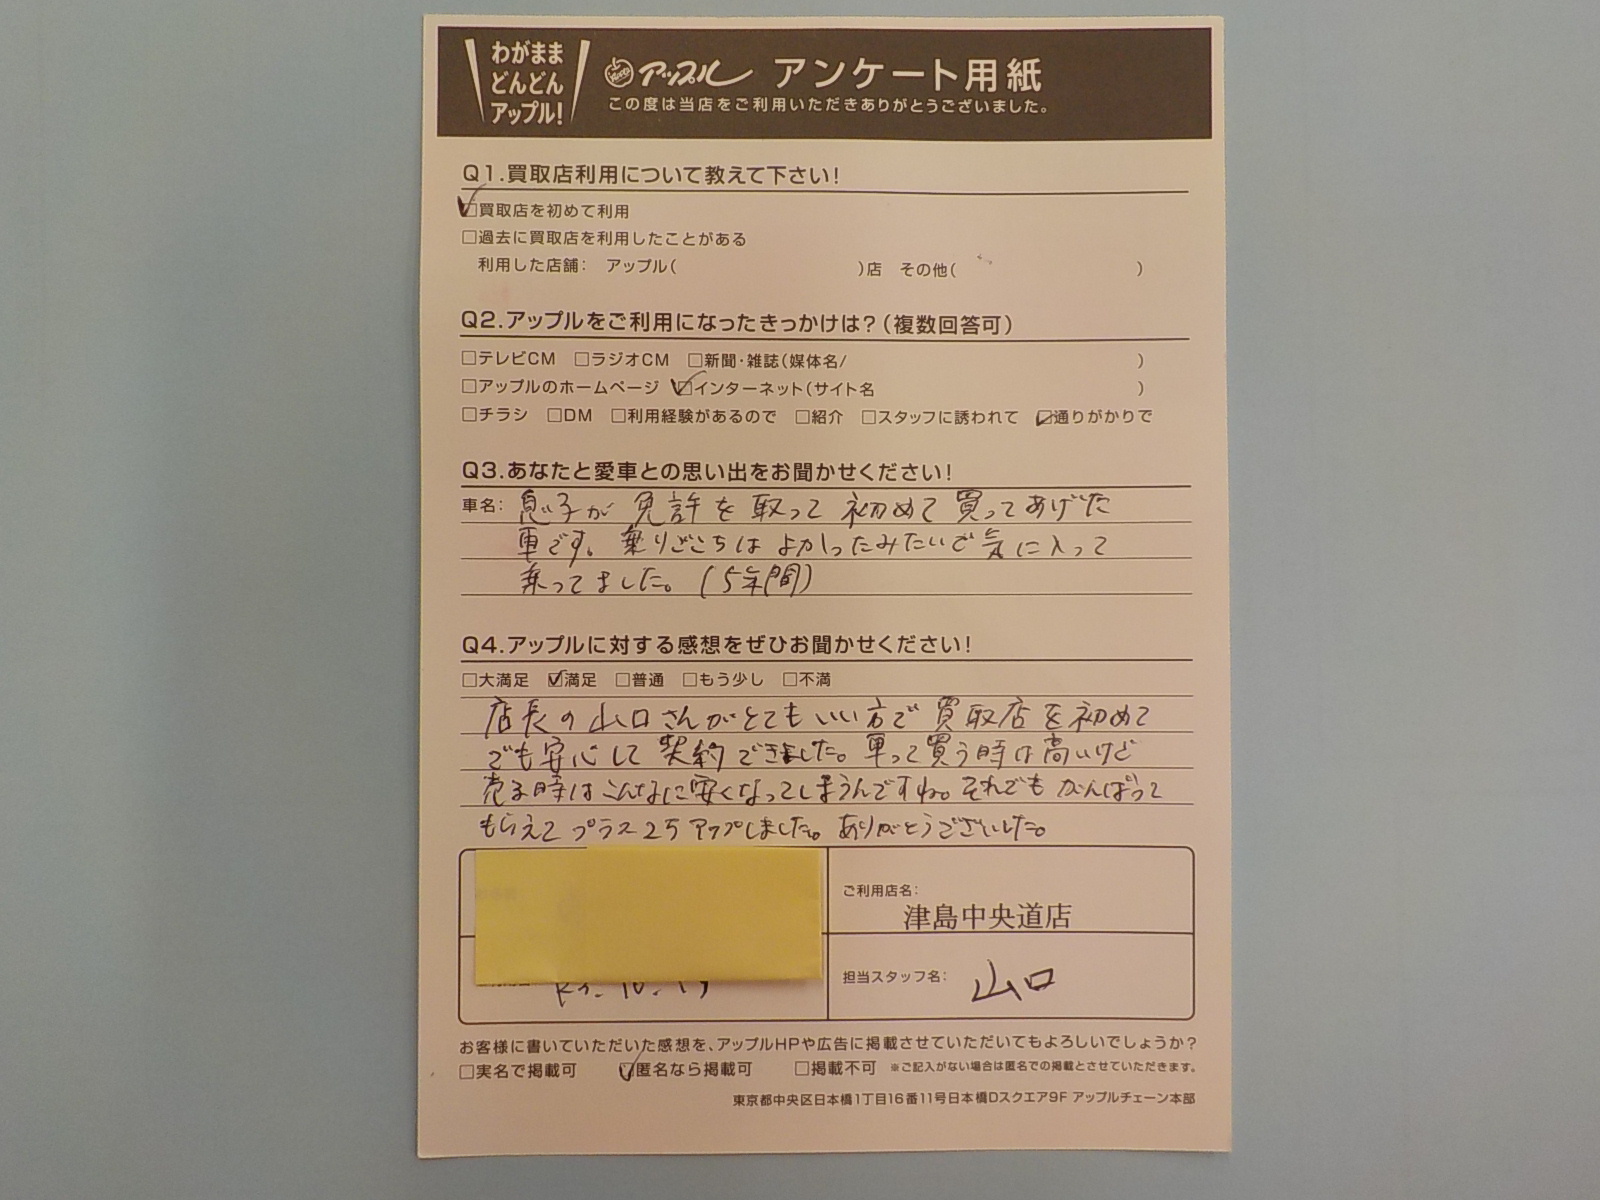 わがまま
どんどん
アップル!
アップル アンケート用紙
この度は当店をご利用いただきありがとうございました。
Q1.買取店利用について教えて下さい!
☑買取店を初めて利用
□過去に買取店を利用したことがある
利用した店舗: アップル( )店 その他( )
Q2.アップルをご利用になったきっかけは?(複数回答可)
□テレビCM □ラジオCM □新聞・雑誌(媒体名/ )
□アップルのホームページ ☑インターネット(サイト名 )
□チラシ □DM □利用経験があるので □紹介 □スタッフに誘われて ☑通りがかりで
Q3.あなたと愛車との思い出をお聞かせください!
車名: 息子が免許を取って初めて買ってあげた
車です。乗りごこちはよかったみたいで気に入って
乗ってました。(5年間)
Q4.アップルに対する感想をぜひお聞かせください!
□大満足 ☑満足 □普通 □もう少し □不満
店長の山口さんがとてもいい方で買取店を初めて
でも安心して契約できました。車って買う時は高いけど
売る時はこんなに安くなってしまうんですね。それでもがんばって
もらえてプラス2万アップしました。ありがとうございした。
ご利用店名:
津島中央道店
担当スタッフ名: 山口
お客様に書いていただいた感想を、アップルHPや広告に掲載させていただいてもよろしいでしょうか?
□実名で掲載可 ☑匿名なら掲載可 □掲載不可 ※ご記入がない場合は匿名での掲載とさせていただきます。
東京都中央区日本橋1丁目16番11号日本橋Dスクエア9F アップルチェーン本部